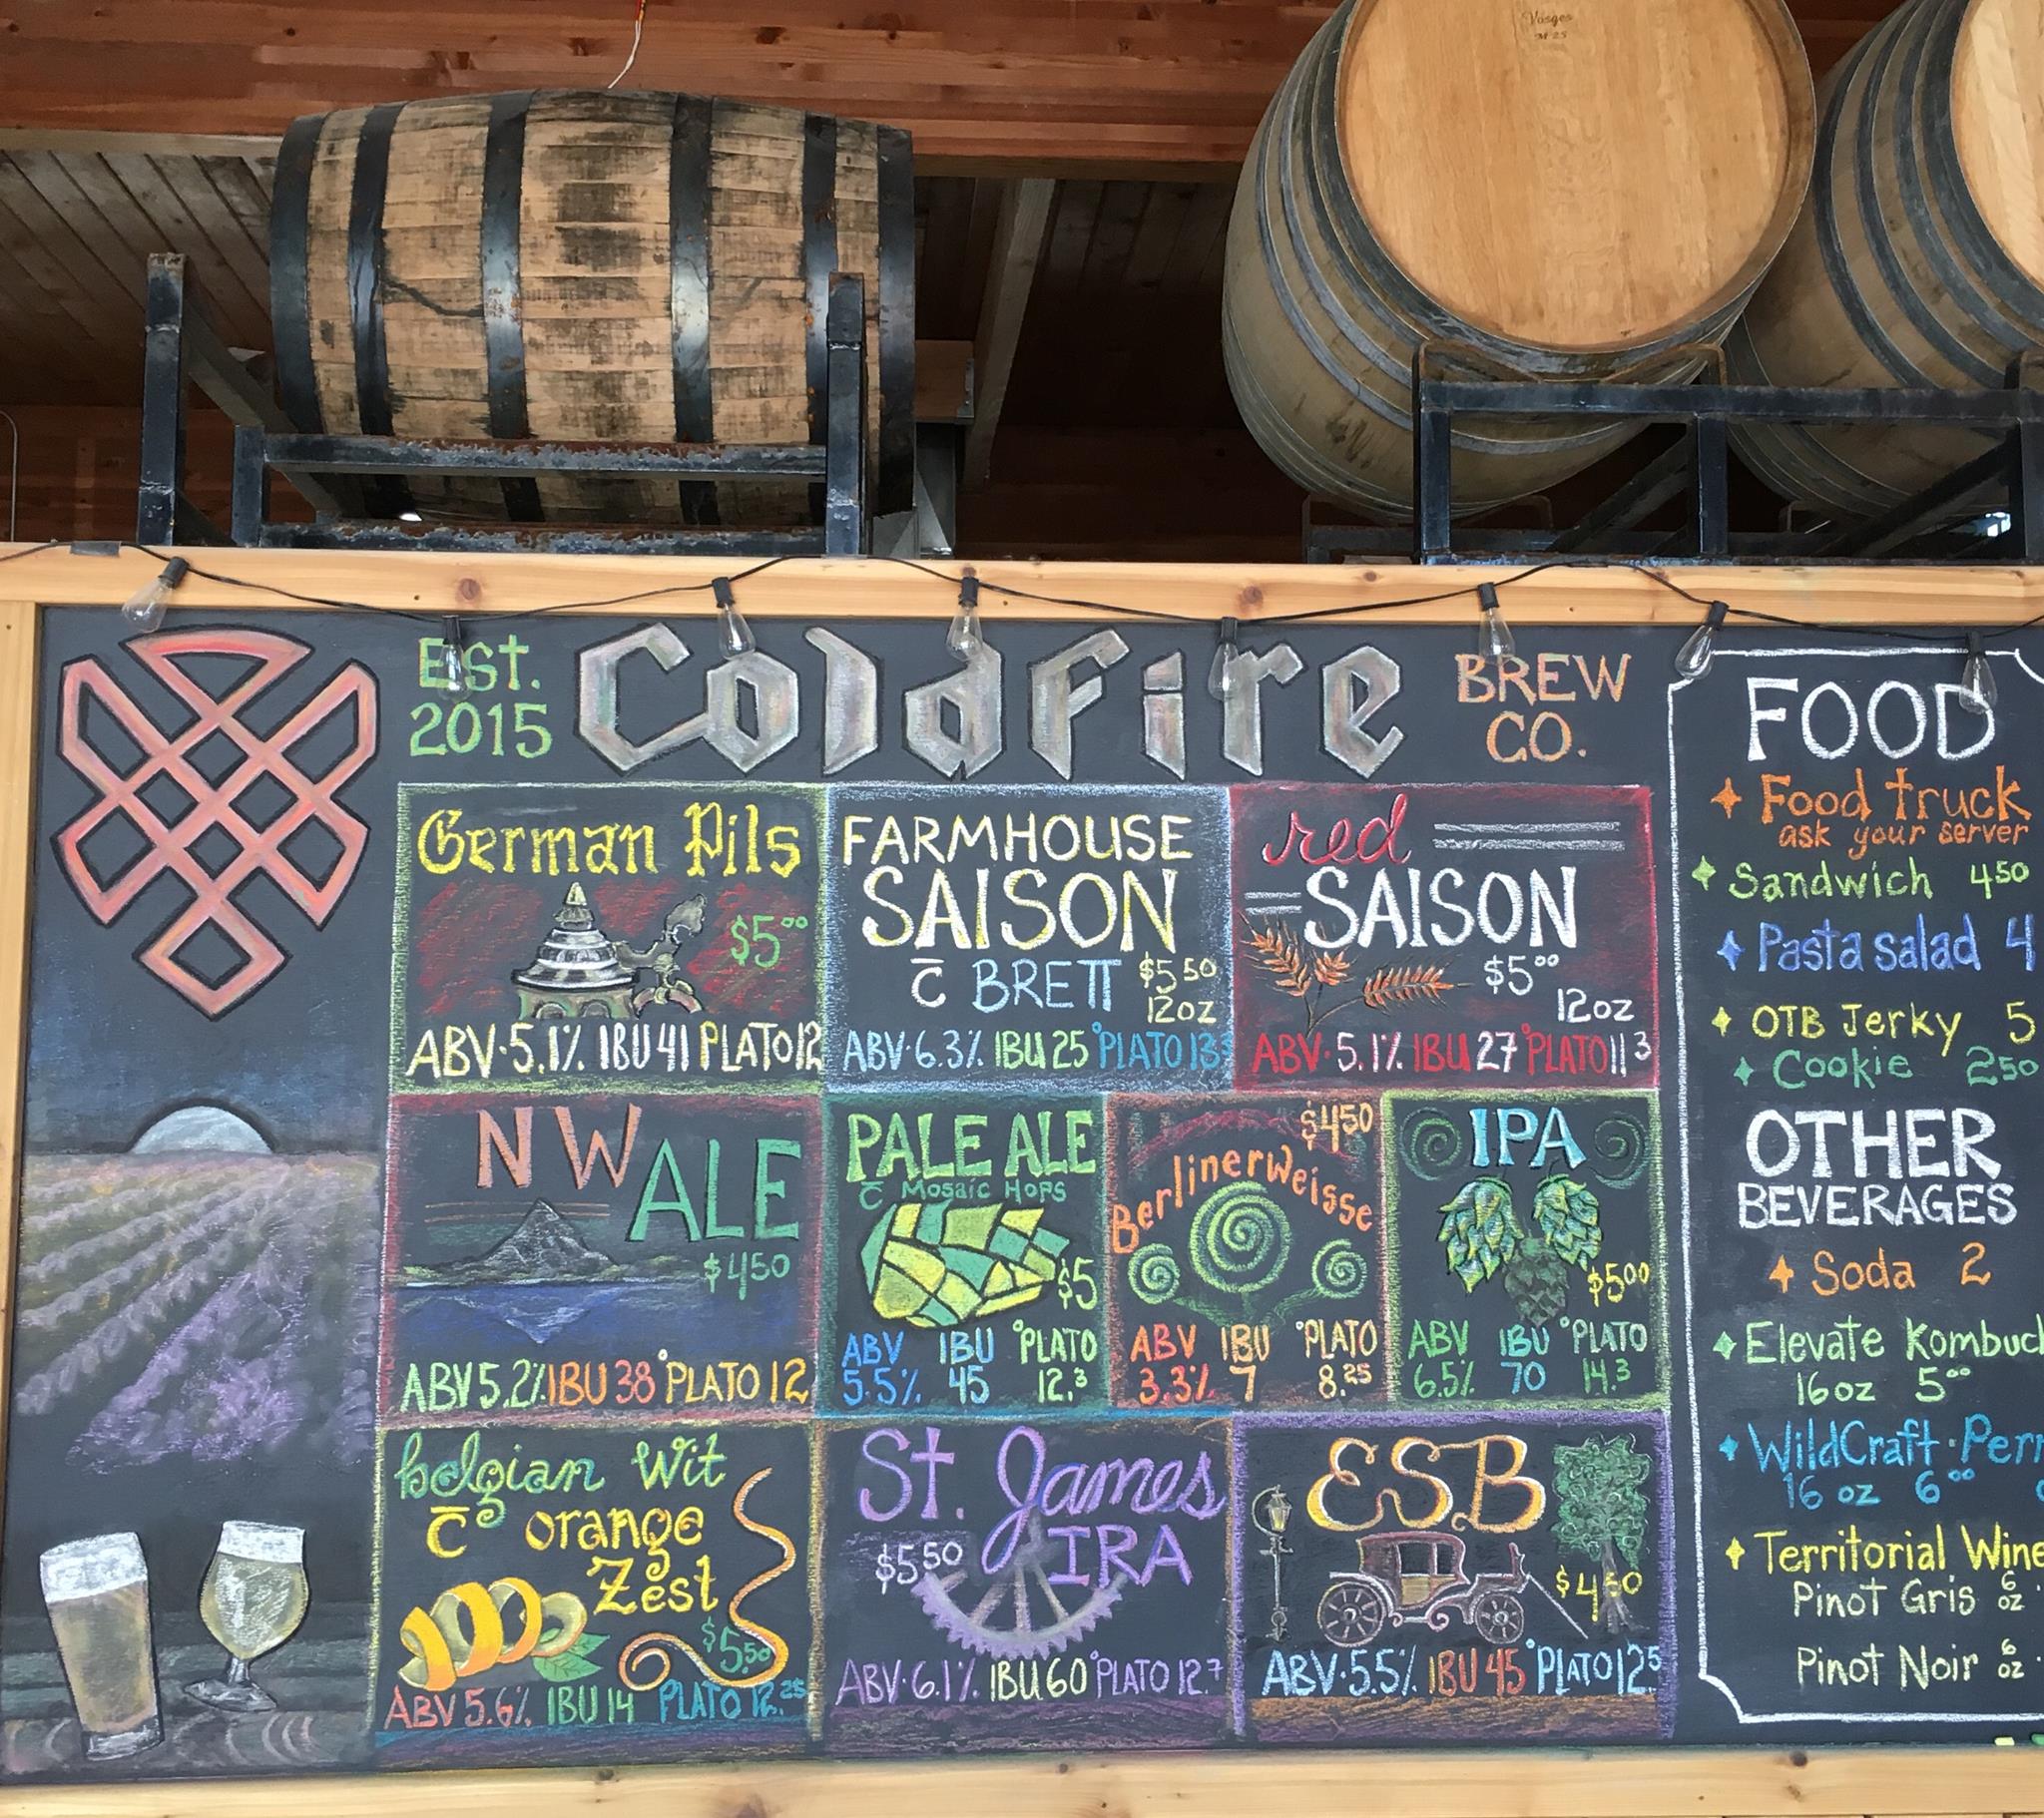 Vosges
M 25
Est.
2015
ColdFire
BREW
CO.
German Pils
$5⁰⁰
ABV·5.1% IBU 41 PLATO 12
FARMHOUSE
SAISON
c̄ BRETT
$5⁵⁰
12oz
ABV·6.3% IBU 25 °PLATO 13³
red
SAISON
$5⁰⁰
12oz
ABV·5.1% IBU 27 °PLATO 11³
NW
ALE
$4⁵⁰
ABV 5.2% IBU 38 °PLATO 12
PALE ALE
c̄ Mosaic Hops
$5
ABV IBU °PLATO
5.5% 45 12.³
$4⁵⁰
Berliner Weisse
ABV IBU °PLATO
3.3% 7 8.²⁵
IPA
$5⁰⁰
ABV IBU °PLATO
6.5% 70 14.³
belgian Wit
c̄ orange
Zest
$5.⁵⁰
ABV 5.6% IBU 14 PLATO 12.²⁵
St. James
IRA
$5⁵⁰
ABV·6.1% IBU 60 °PLATO 12.⁷
ESB
$4⁵⁰
ABV·5.5% IBU 45 °PLATO 12⁵
FOOD
Food truck
ask your server
Sandwich 4⁵⁰
Pasta salad 4
OTB Jerky 5
Cookie 2⁵⁰
OTHER
BEVERAGES
Soda 2
Elevate Kombuc
16 oz 5⁰⁰
WildCraft·Perr
16 oz 6⁰⁰
Territorial Wine
Pinot Gris 6 oz
Pinot Noir 6 oz